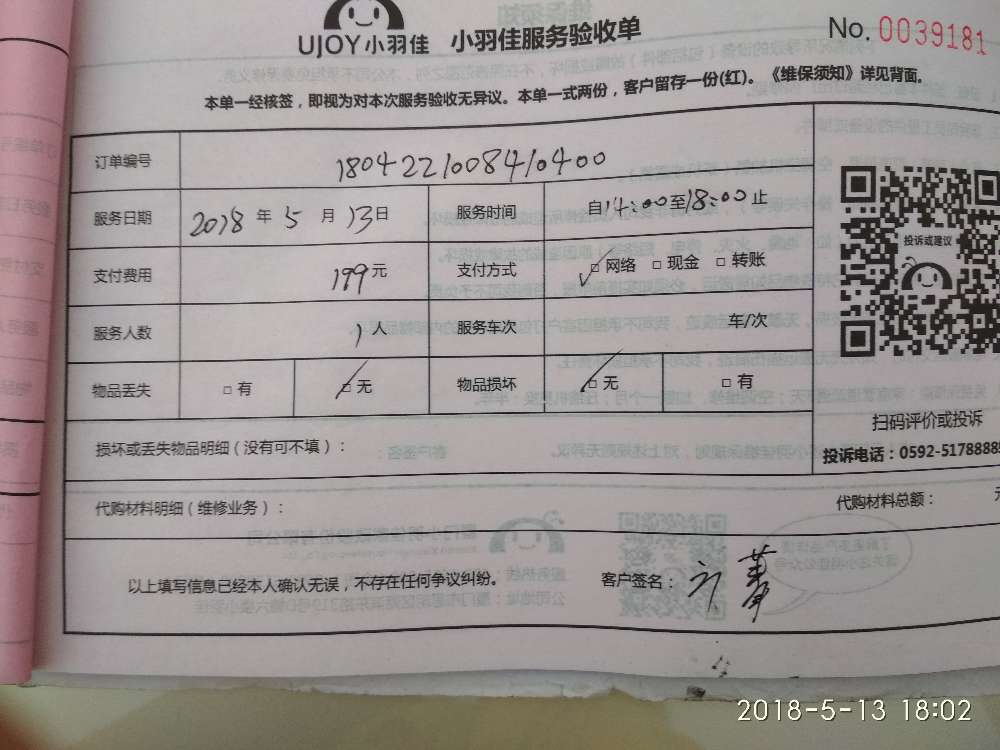 UJOY小羽佳 小羽佳服务验收单 No. 0039181
本单一经核签，即视为对本次服务验收无异议。本单一式两份，客户留存一份(红)。《维保须知》详见背面。
订单编号 180422100840400
服务日期 2018 年 5 月 13 日 服务时间 自 14:00 至 18:00 止
支付费用 199 元 支付方式 ✓□ 网络 □ 现金 □ 转账
服务人数 1 人 服务车次 车/次
物品丢失 □ 有 □ 无 物品损坏 □ 无 □ 有
投诉或建议
扫码评价或投诉
投诉电话：0592-5178888
损坏或丢失物品明细（没有可不填）：
代购材料明细（维修业务）： 代购材料总额： 元
以上填写信息已经本人确认无误，不存在任何争议纠纷。 客户签名：
2018-5-13 18:02